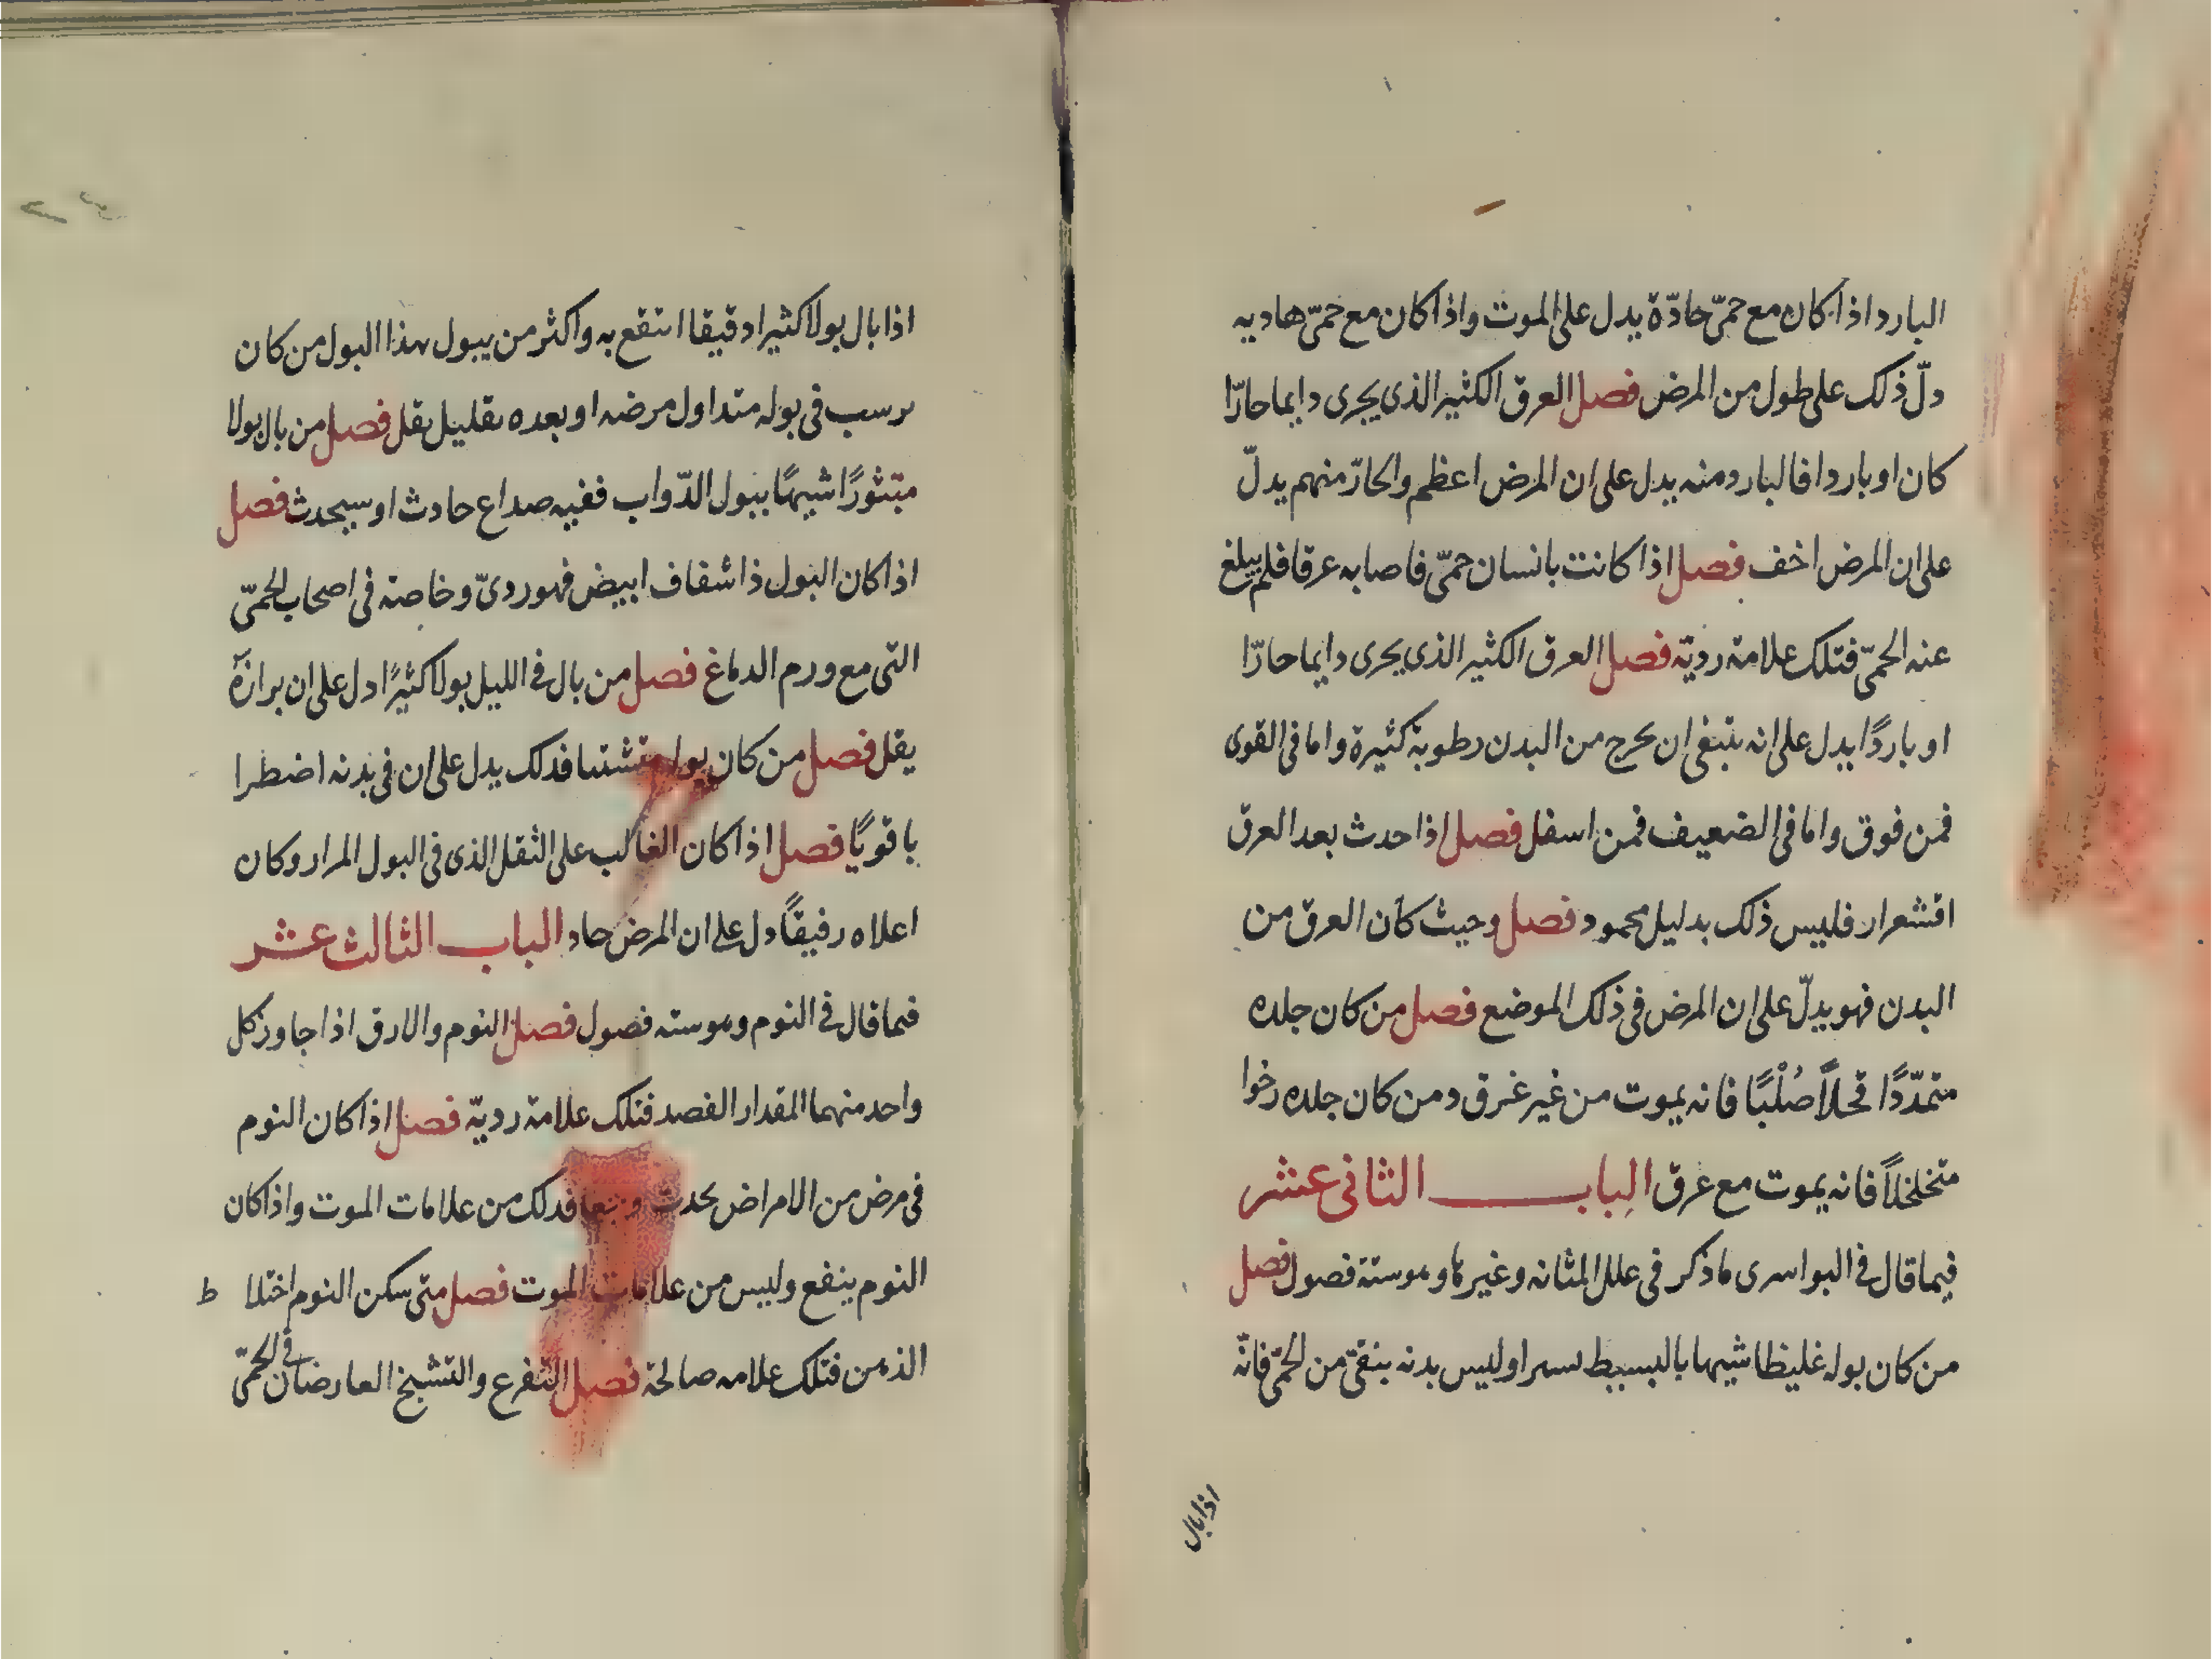 البارد اذا كان مع حمىّ حادّة يدل على الموت واذا كان مع حمىّ هاديه
دلّ ذلك على طول من المرض فصل العرق الكثير الذى يجرى دايما حارّا
كان او باردا فالبارد منه يدل على ان المرض اعظم والحارّ منهم يدلّ
على ان المرض اخف فصل اذا كانت بانسان حمىّ فاصابه عرقا فلم يبلغ
عنه الحمىّ فتلك علامة رديّه فصل العرق الكثير الذى يجرى دايما حارّا
او باردًا يدل على انه ينبغى ان يخرج من البدن رطوبة كثيرة واما فى القوى
فمن فوق واما فى الضعيف فمن اسفل فصل اذا حدث بعد العرق
اقشعرار فليس ذلك بدليل محمود فصل وحيث كان العرق من
البدن فهو يدلّ على ان المرض فى ذلك الموضع فصل من كان جلده
متمدّدًا قحلاً صُلْبًا فانه يموت من غير غرق ومن كان جلده رخوا
متخلخلاً فانه يموت مع غرق الباب الثانى عشر
فيما قال فى البواسرى ماذكر فى علل المثانه وغيرها وهو ستة فصول فصل
من كان بوله غليظا شيها بالبسيط يسيرا وليس بدنه بنقىّ من الحمىّ فانّه
اذا بال
اذا بال بولا كثيرا دقيقا انتقع به واكثر من يبول بهذا البول من كان
يرسب فى بوله متداول مرضه او بعده بقليل يقل فصل من بال بولا
متثورًا شيهًا ببول الدّواب ففيه صداع حادث او سيحدث فصل
اذا كان البول ذا شفاف ابيض فهو ردىّ وخاصة فى اصحاب الحمىّ
التى مع ورم الدماغ فصل من بال فى الليل بولا كثيرًا دل على ان برازة
يقل فصل من كان بوله متشتتا فدلك يدل على ان فى بدنه اضطرا
با قويًا فصل اذا كان الغالب على الثقل الذى فى البول المرار وكان
اعلاه رفيقًا دل على ان المرض حاد الباب الثالث عشر
فيما قال فى النوم وهو سته فصول فصل النوم والارق اذا جاوز كل
واحد منهما المقدار القصد فتلك علامة رديّه فصل اذا كان النوم
فى مرض من الامراض يحدث فدلك من علامات الموت واذا كان
النوم ينفع وليس من علامات الموت فصل متى سكن النوم اختلا ط
الذهن فتلك علامه صالحة فصل التفرع والتشنج العارضان فى الحمىّ